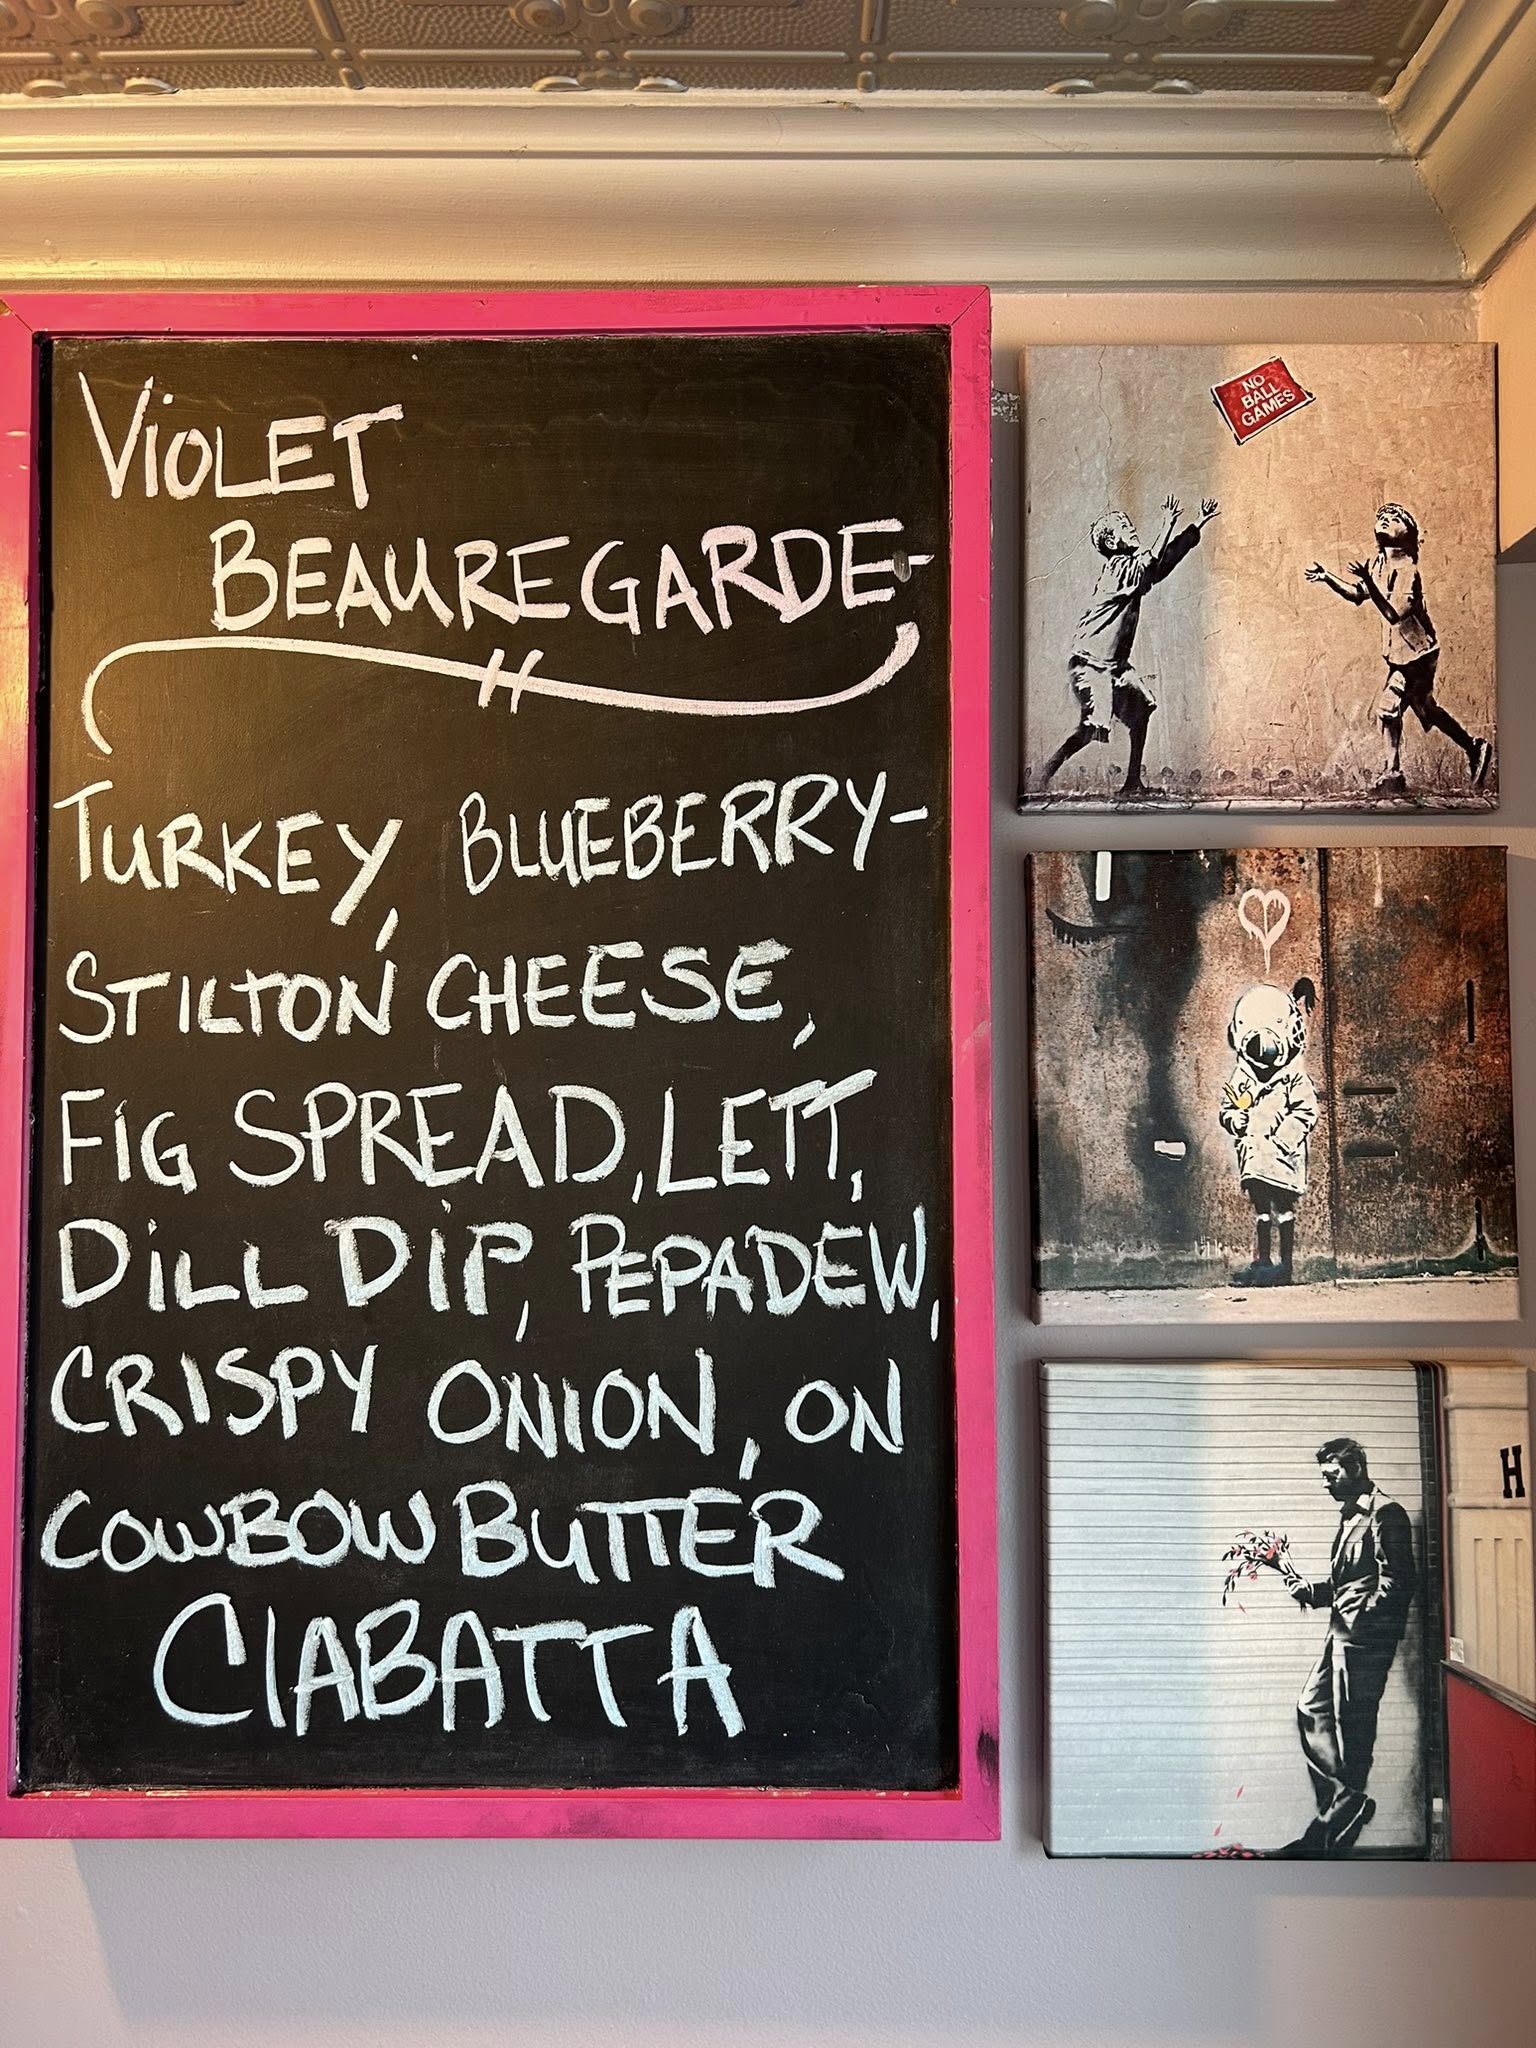 VIOLET
BEAUREGARDE-
TURKEY, BLUEBERRY-
STILTON CHEESE,
FIG SPREAD, LETT,
DILL DIP, PEPADEW,
CRISPY ONION, ON
COWBOW BUTTER
CIABATTA
NO
BALL
GAMES
H